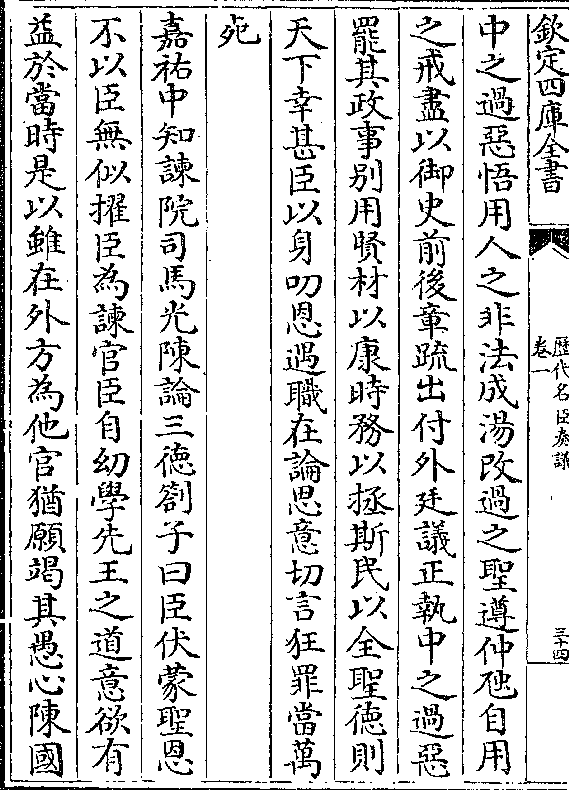 欽定四庫全書
歷代名臣奏議
卷一
三十四
中之過惡悟用人之非法成湯改過之聖遵仲虺自用
之戒盡以御史前後章疏出付外廷議正執中之過惡
罷其政事别用賢材以康時務以拯斯民以全聖德則
天下幸甚臣以身叨恩遇職在論思意切言狂罪當萬
死
嘉祐中知諫院司馬光陳論三德劄子曰臣伏蒙聖恩
不以臣無似擢臣為諫官臣自幼學先王之道意欲有
益於當時是以雖在外方為他官猶願竭其愚心陳國